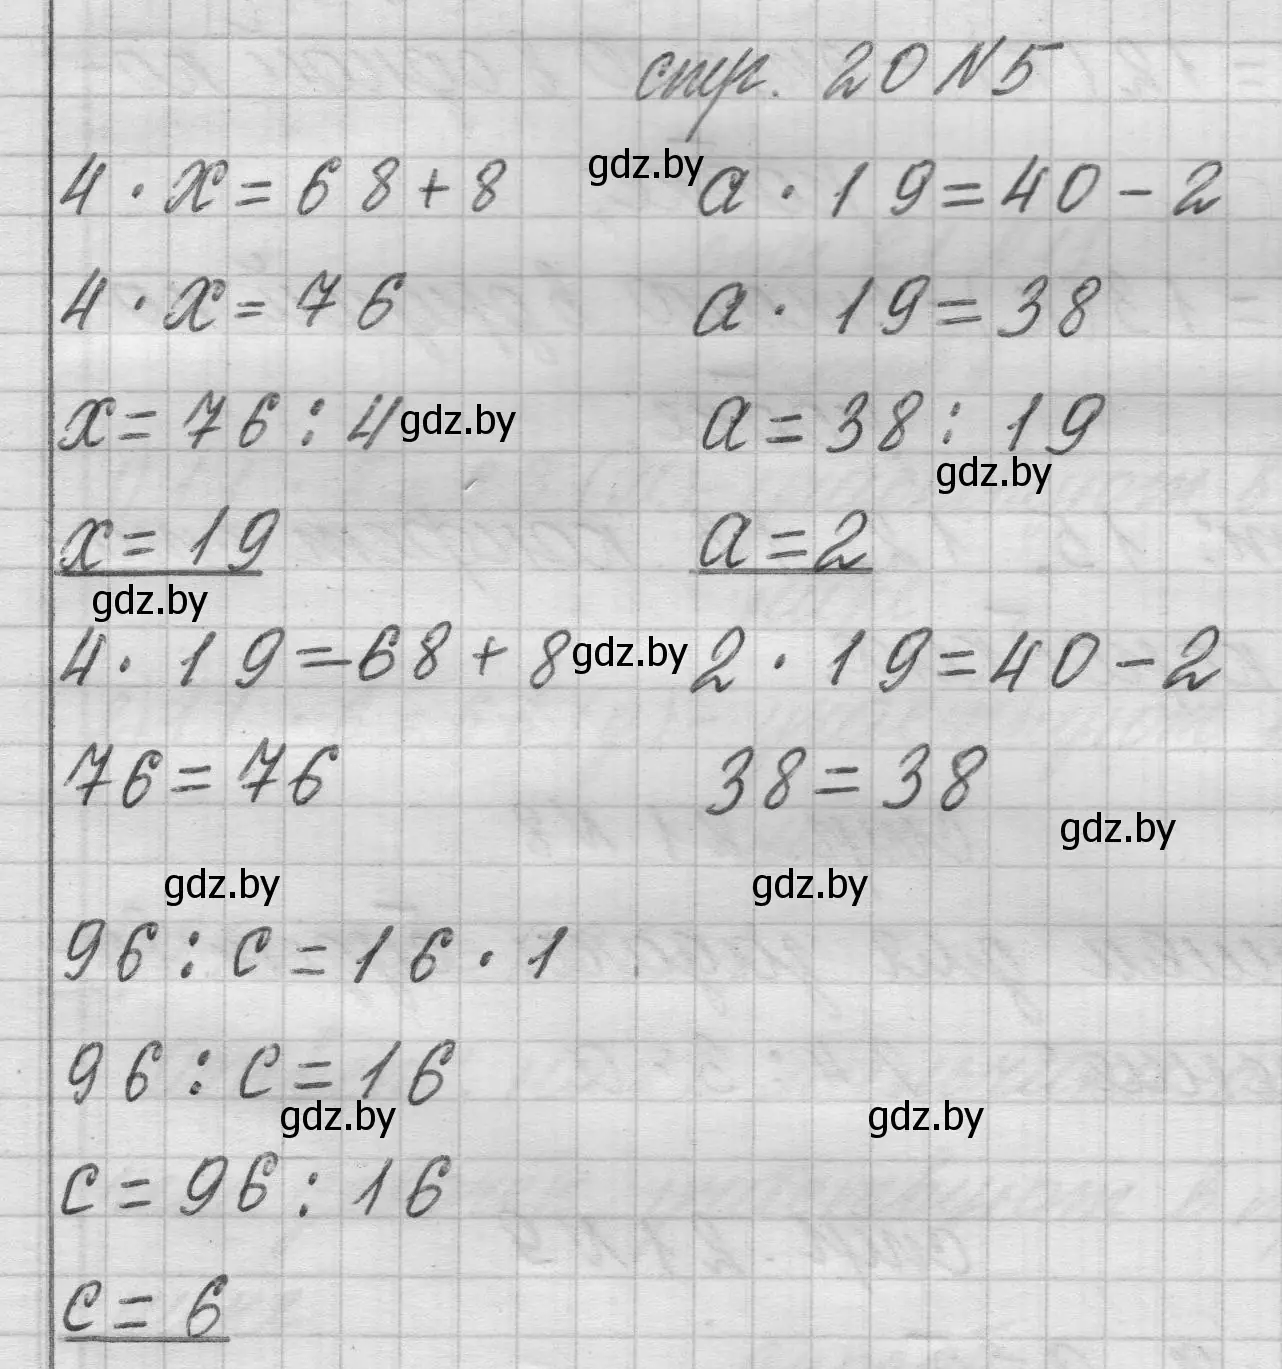 стр. 20 №5
4 · x = 68 + 8
gdz.by
a · 19 = 40 - 2
4 · x = 76
a · 19 = 38
x = 76 : 4
gdz.by
a = 38 : 19
gdz.by
x = 19
a = 2
gdz.by
4 · 19 = 68 + 8
gdz.by
2 · 19 = 40 - 2
76 = 76
38 = 38
gdz.by
gdz.by
gdz.by
96 : c = 16 · 1
96 : c = 16
gdz.by
gdz.by
c = 96 : 16
c = 6